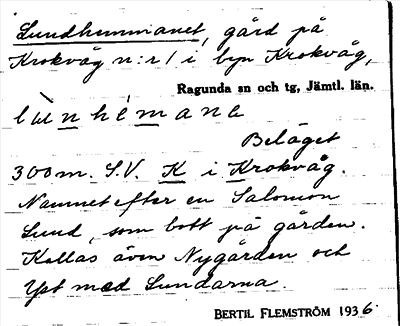 Lundhemmanet, gård på
Krokvåg n:r 1 i byn Krokvåg,
Ragunda sn och tg, Jämtl. län.
Beläget
300 m. S.V. K i Krokvåg.
Namnet efter en Salomon
Lund, som bott på gården.
Kallas även Nygården och
Yst med Lundarna.
BERTIL FLEMSTRÖM 1936.